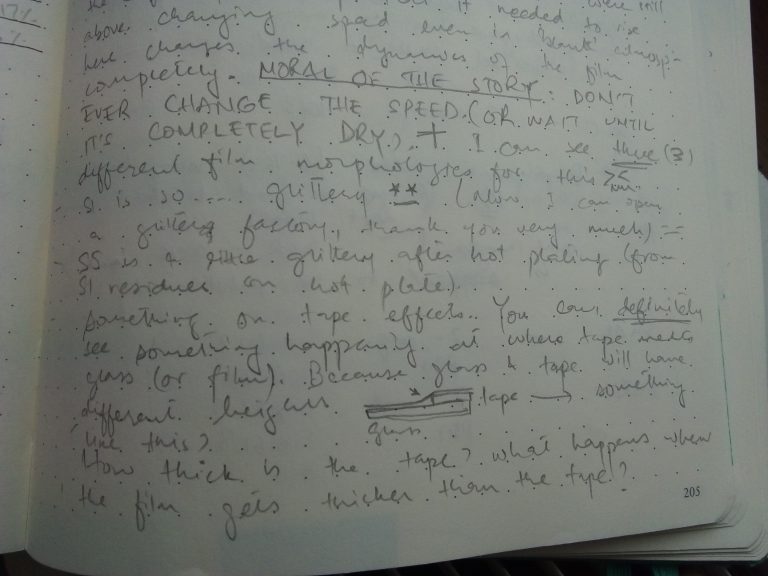 17%
needed to rise
above changing speed even in "blank" atmosp-
here changes the dynamics of the film
completely. MORAL OF THE STORY: DON'T
EVER CHANGE THE SPEED. (OR WAIT UNTIL
IT'S COMPLETELY DRY) + I can see three (3)
different film morphologies for this
- S1 is so .... glittery ** (Now I can open
a glittery factory, thank you very much)
- S5 is a little glittery after hot plating (from
S1 residues on hot plate).
Something on tape effects.. You can definitely
see something happening at where tape meets
glass (or film). Because glass & tape will have
different heights tape → something
glass
like this?
How thick is the tape? What happens when
the film gets thicker than the tape?
205